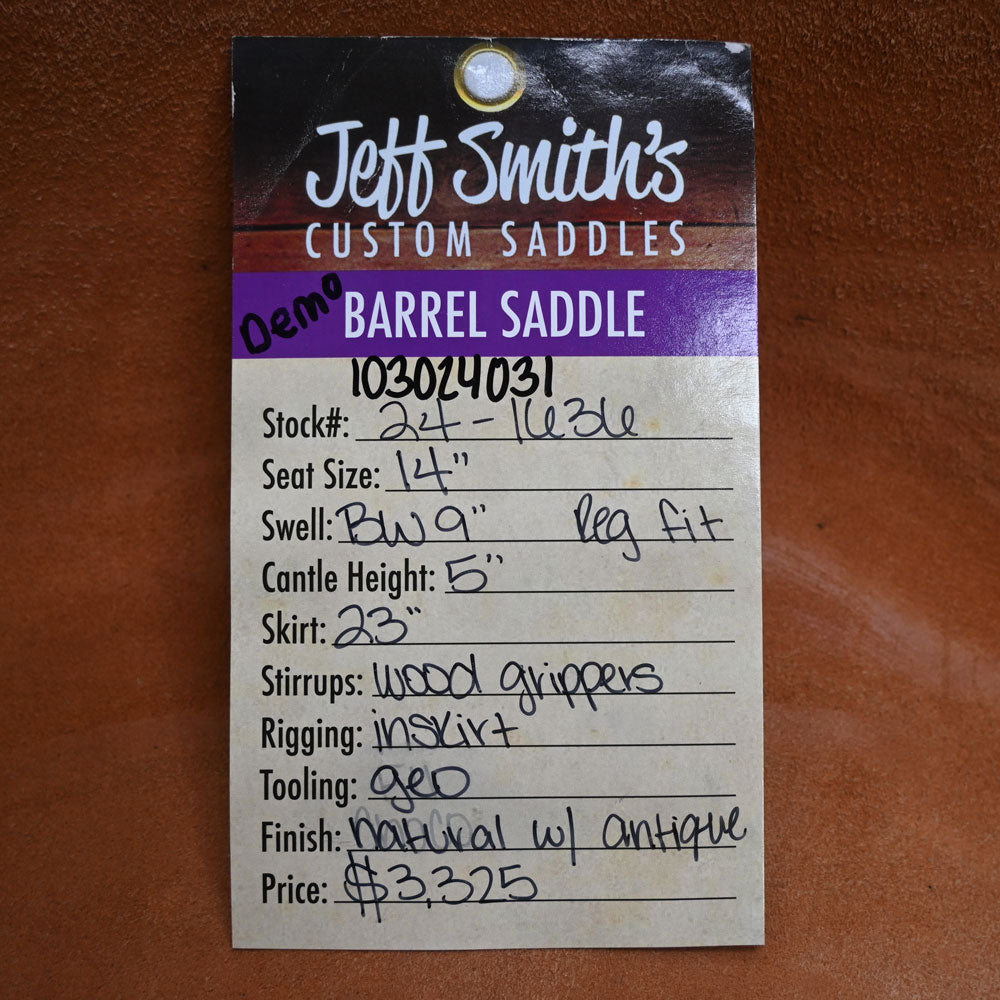 Jeff Smith's
CUSTOM SADDLES
Demo BARREL SADDLE
103024031
Stock#: 24-1636
Seat Size: 14"
Swell: BW 9" Reg fit
Cantle Height: 5"
Skirt: 23"
Stirrups: wood grippers
Rigging: inskirt
Tooling: geo
Finish: natural w/ antique
Price: $3,325